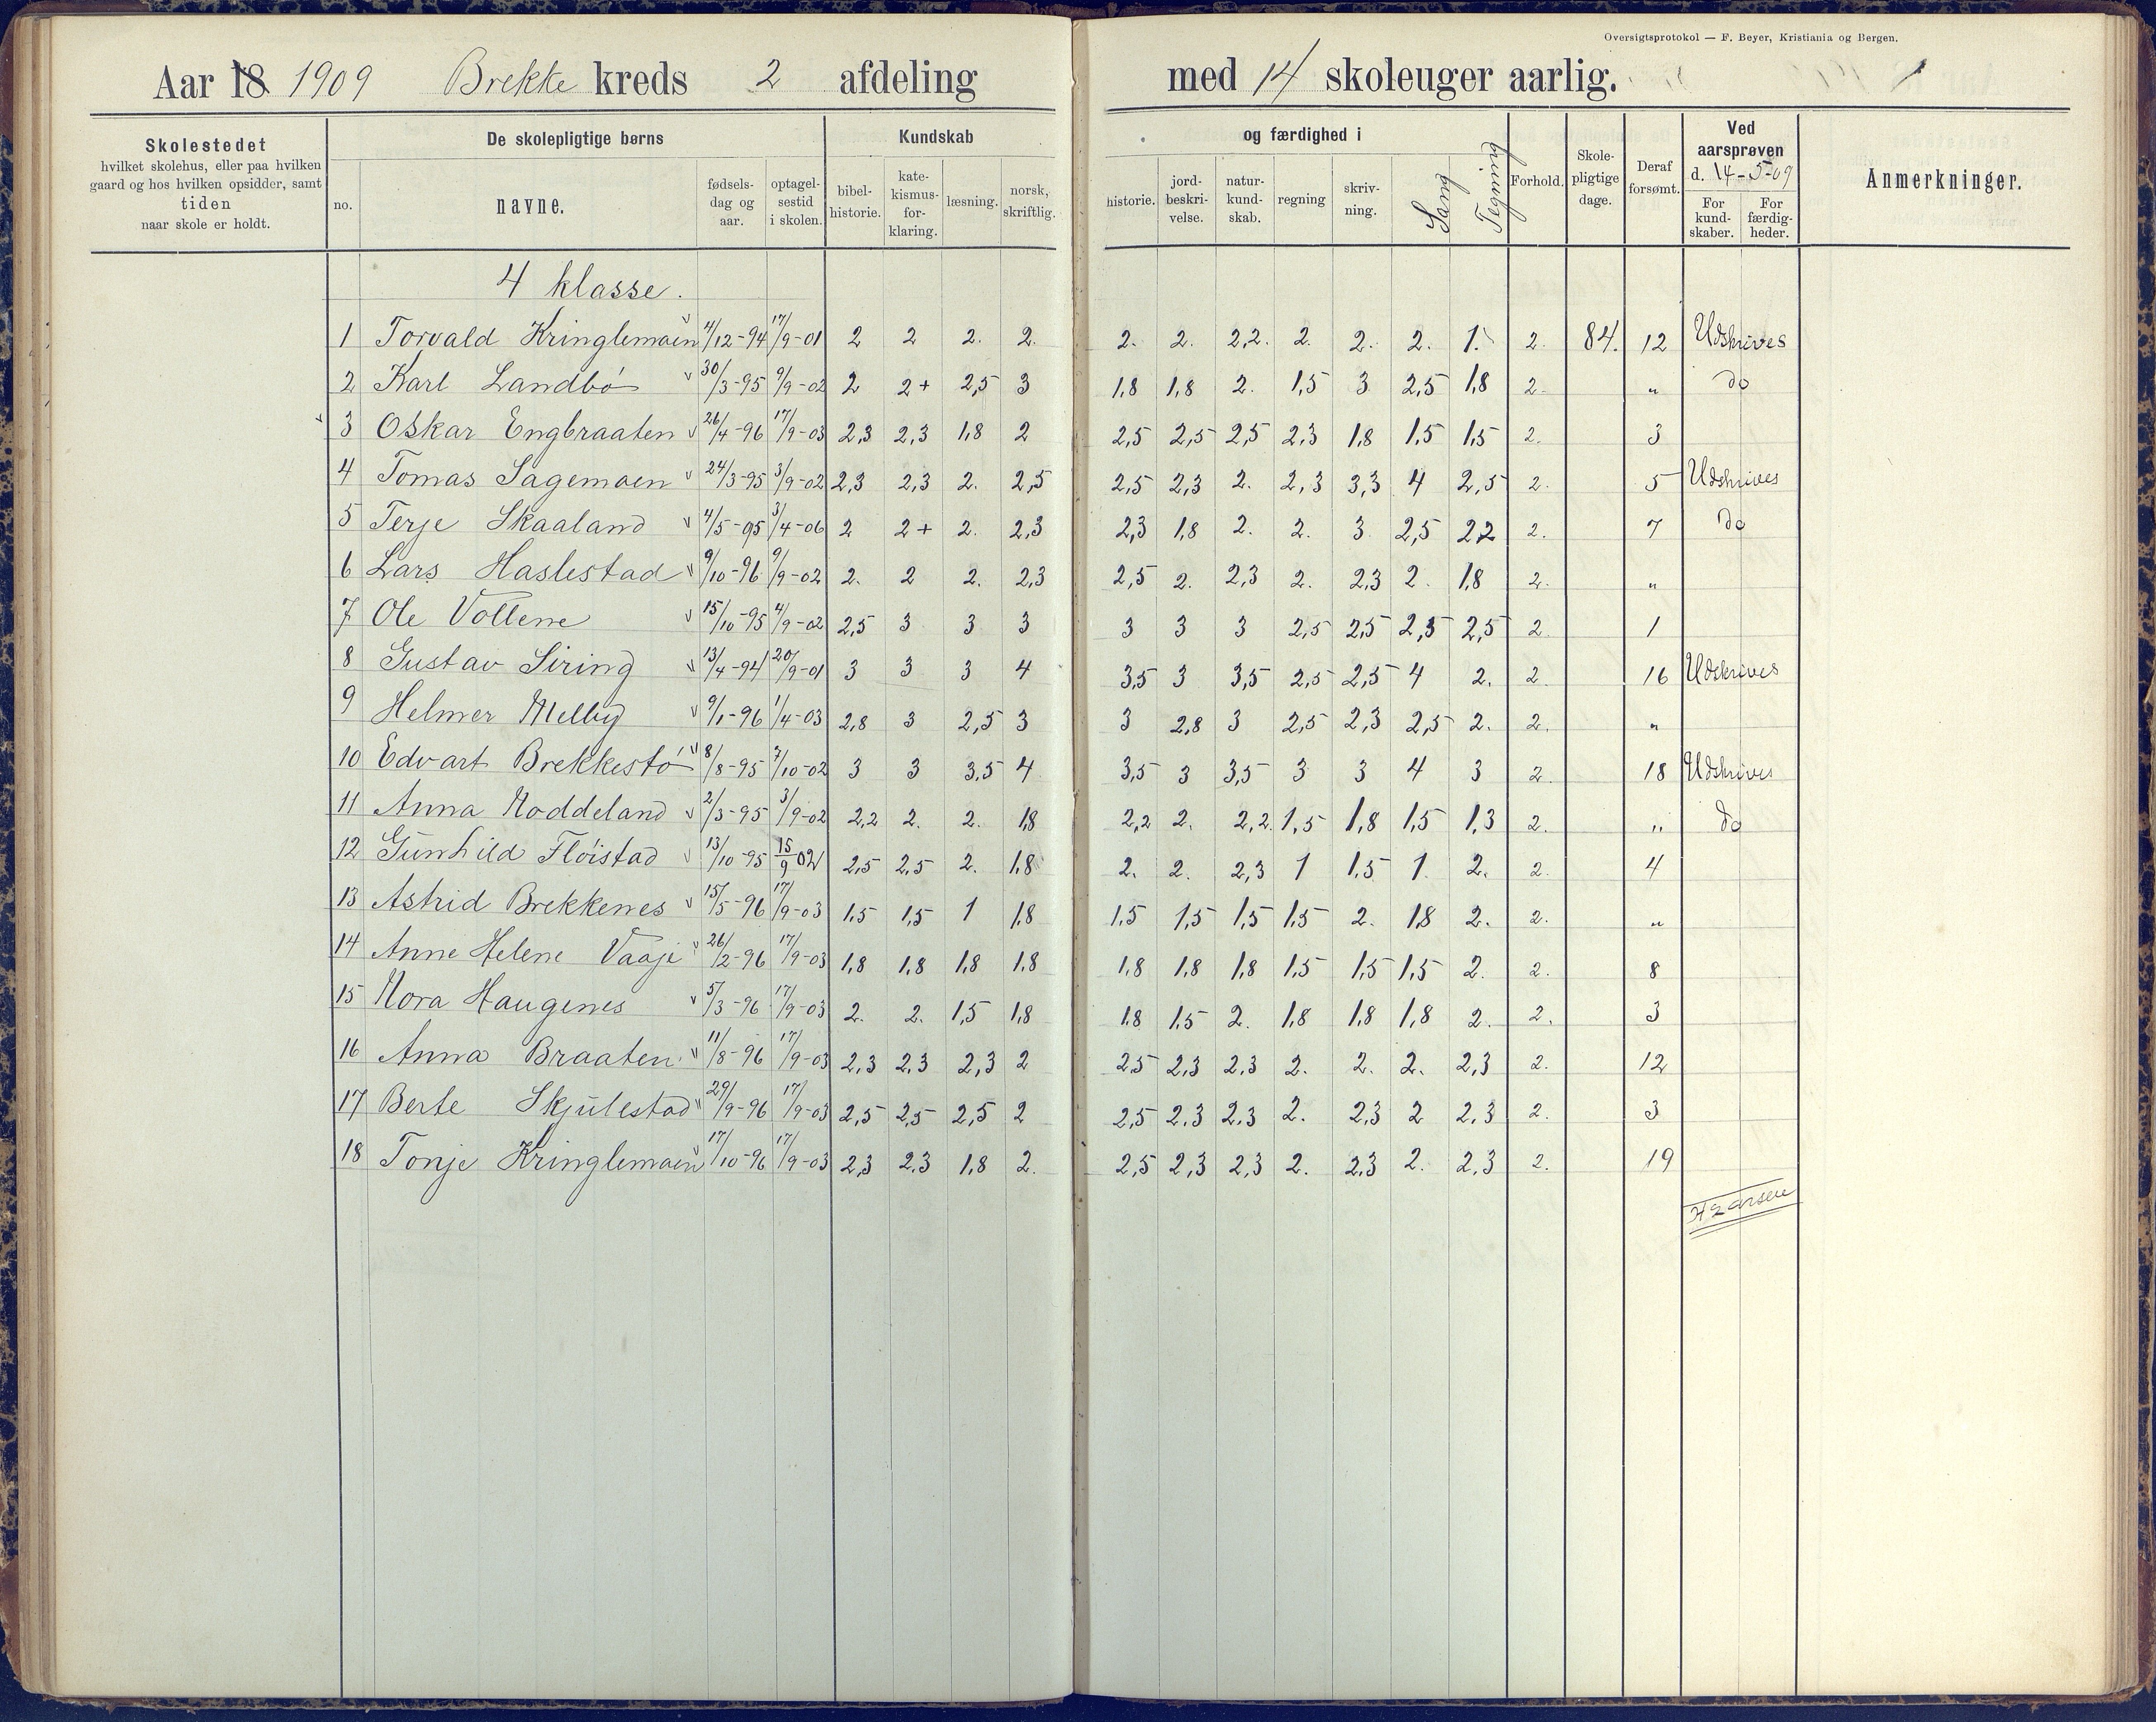 Oversigtsprotokol — F. Beyer, Kristiania og Bergen.
Aar 18 1909 Brekke kreds 2 afdeling med 14 skoleuger aarlig. 1
Skolestedet
hvilket skolehus, eller paa hvilken
gaard og hos hvilken opsidder, samt
tiden
naar skole er holdt.
De skolepligtige børns
no.
navne.
fødsels-
dag og
aar.
optagel-
sestid
i skolen.
Kundskab
bibel-
historie.
kate-
kismus-
for-
klaring.
læsning.
norsk,
skriftlig.
og færdighed i
historie.
jord-
beskri-
velse.
natur-
kund-
skab.
regning
skriv-
ning.
Sang
Tegning
Forhold.
Skole-
pligtige
dage.
Deraf
forsømt.
Ved
aarsprøven
d. 14-5-09
For
kund-
skaber.
For
færdig-
heder.
Anmerkninger.
4 klasse.
1 Torvald Kringlemoen 4/12-94 17/9-01 2 2 2. 2. 2. 2. 2,2. 2. 2. 2. 1. 2. 84. 12 Udskrives
2 Karl Landbö 30/3-95 9/9-02 2 2+ 2,5 3 1,8 1,8 2. 1,5 3 2,5 1,8 2. " do
3 Oskar Engbraaten 26/4-96 17/9-03 2,3 2,3 1,8 2 2,5 2,5 2,5 2,3 1,8 1,5 1,5 2. 3
4 Tomas Sagemoen 24/3-95 3/9-02 2,3 2,3 2. 2,5 2,5 2,3 2. 2,3 3,3 4 2,5 2. 5 Udskrives
5 Terje Skaaland 4/5-95 3/4-06 2 2+ 2. 2,3 2,3 1,8 2. 2. 3 2,5 2,2 2. 7 do
6 Lars Haslestad 9/10-96 9/9-02 2. 2 2. 2,3 2,5 2. 2,3 2. 2,3 2. 1,8 2. "
7 Ole Vollene 15/10-95 4/9-02 2,5 3 3 3 3 3 3 2,5 2,5 2,5 2,5 2. 1
8 Gustav Siring 13/4-94 20/9-01 3 3 3 4 3,5 3 3,5 2,5 2,5 4 2. 2. 16 Udskrives
9 Helmer Melby 9/1-96 1/4-03 2,8 3 2,5 3 3 2,8 3 2,5 2,3 2,5 2. 2. "
10 Edvart Brekkestö 8/8-95 7/10-02 3 3 3,5 4 3,5 3 3,5 3 3 4 3 2. 18 Udskrives
11 Anna Noddeland 2/3-95 3/9-02 2,2 2. 2. 1,8 2,2 2. 2,2 1,5 1,8 1,5 1,3 2. " do
12 Gunhild Flöistad 13/10-95 15/9 02 2,5 2,5 2. 1,8 2. 2. 2,3 1 1,5 1 2. 2. 4
13 Astrid Brekkenes 15/5-96 17/9-03 1,5 1,5 1 1,8 1,5 1,5 1,5 1,5 2. 1,8 2. 2. "
14 Anne Helene Vaaje 26/2-96 17/9-03 1,8 1,8 1,8 1,8 1,8 1,8 1,8 1,5 1,5 1,5 2. 2. 8
15 Nora Haugenes 5/3-96 17/9-03 2. 2. 1,5 1,8 1,8 1,5 2. 1,8 1,8 1,8 2. 2. 3
16 Anna Braaten 11/8-96 17/9-03 2,3 2,3 2,3 2 2,5 2,3 2,3 2. 2. 2. 2,3 2. 12
17 Berte Skjulestad 29/9-96 17/9-03 2,5 2,5 2,5 2 2,5 2,3 2,3 2. 2,3 2 2,3 2. 3
18 Tonje Kringlemoen 17/10-96 17/9-03 2,3 2,3 1,8 2. 2,5 2,3 2,3 2. 2,3 2. 2,3 2. 19
H Larsen